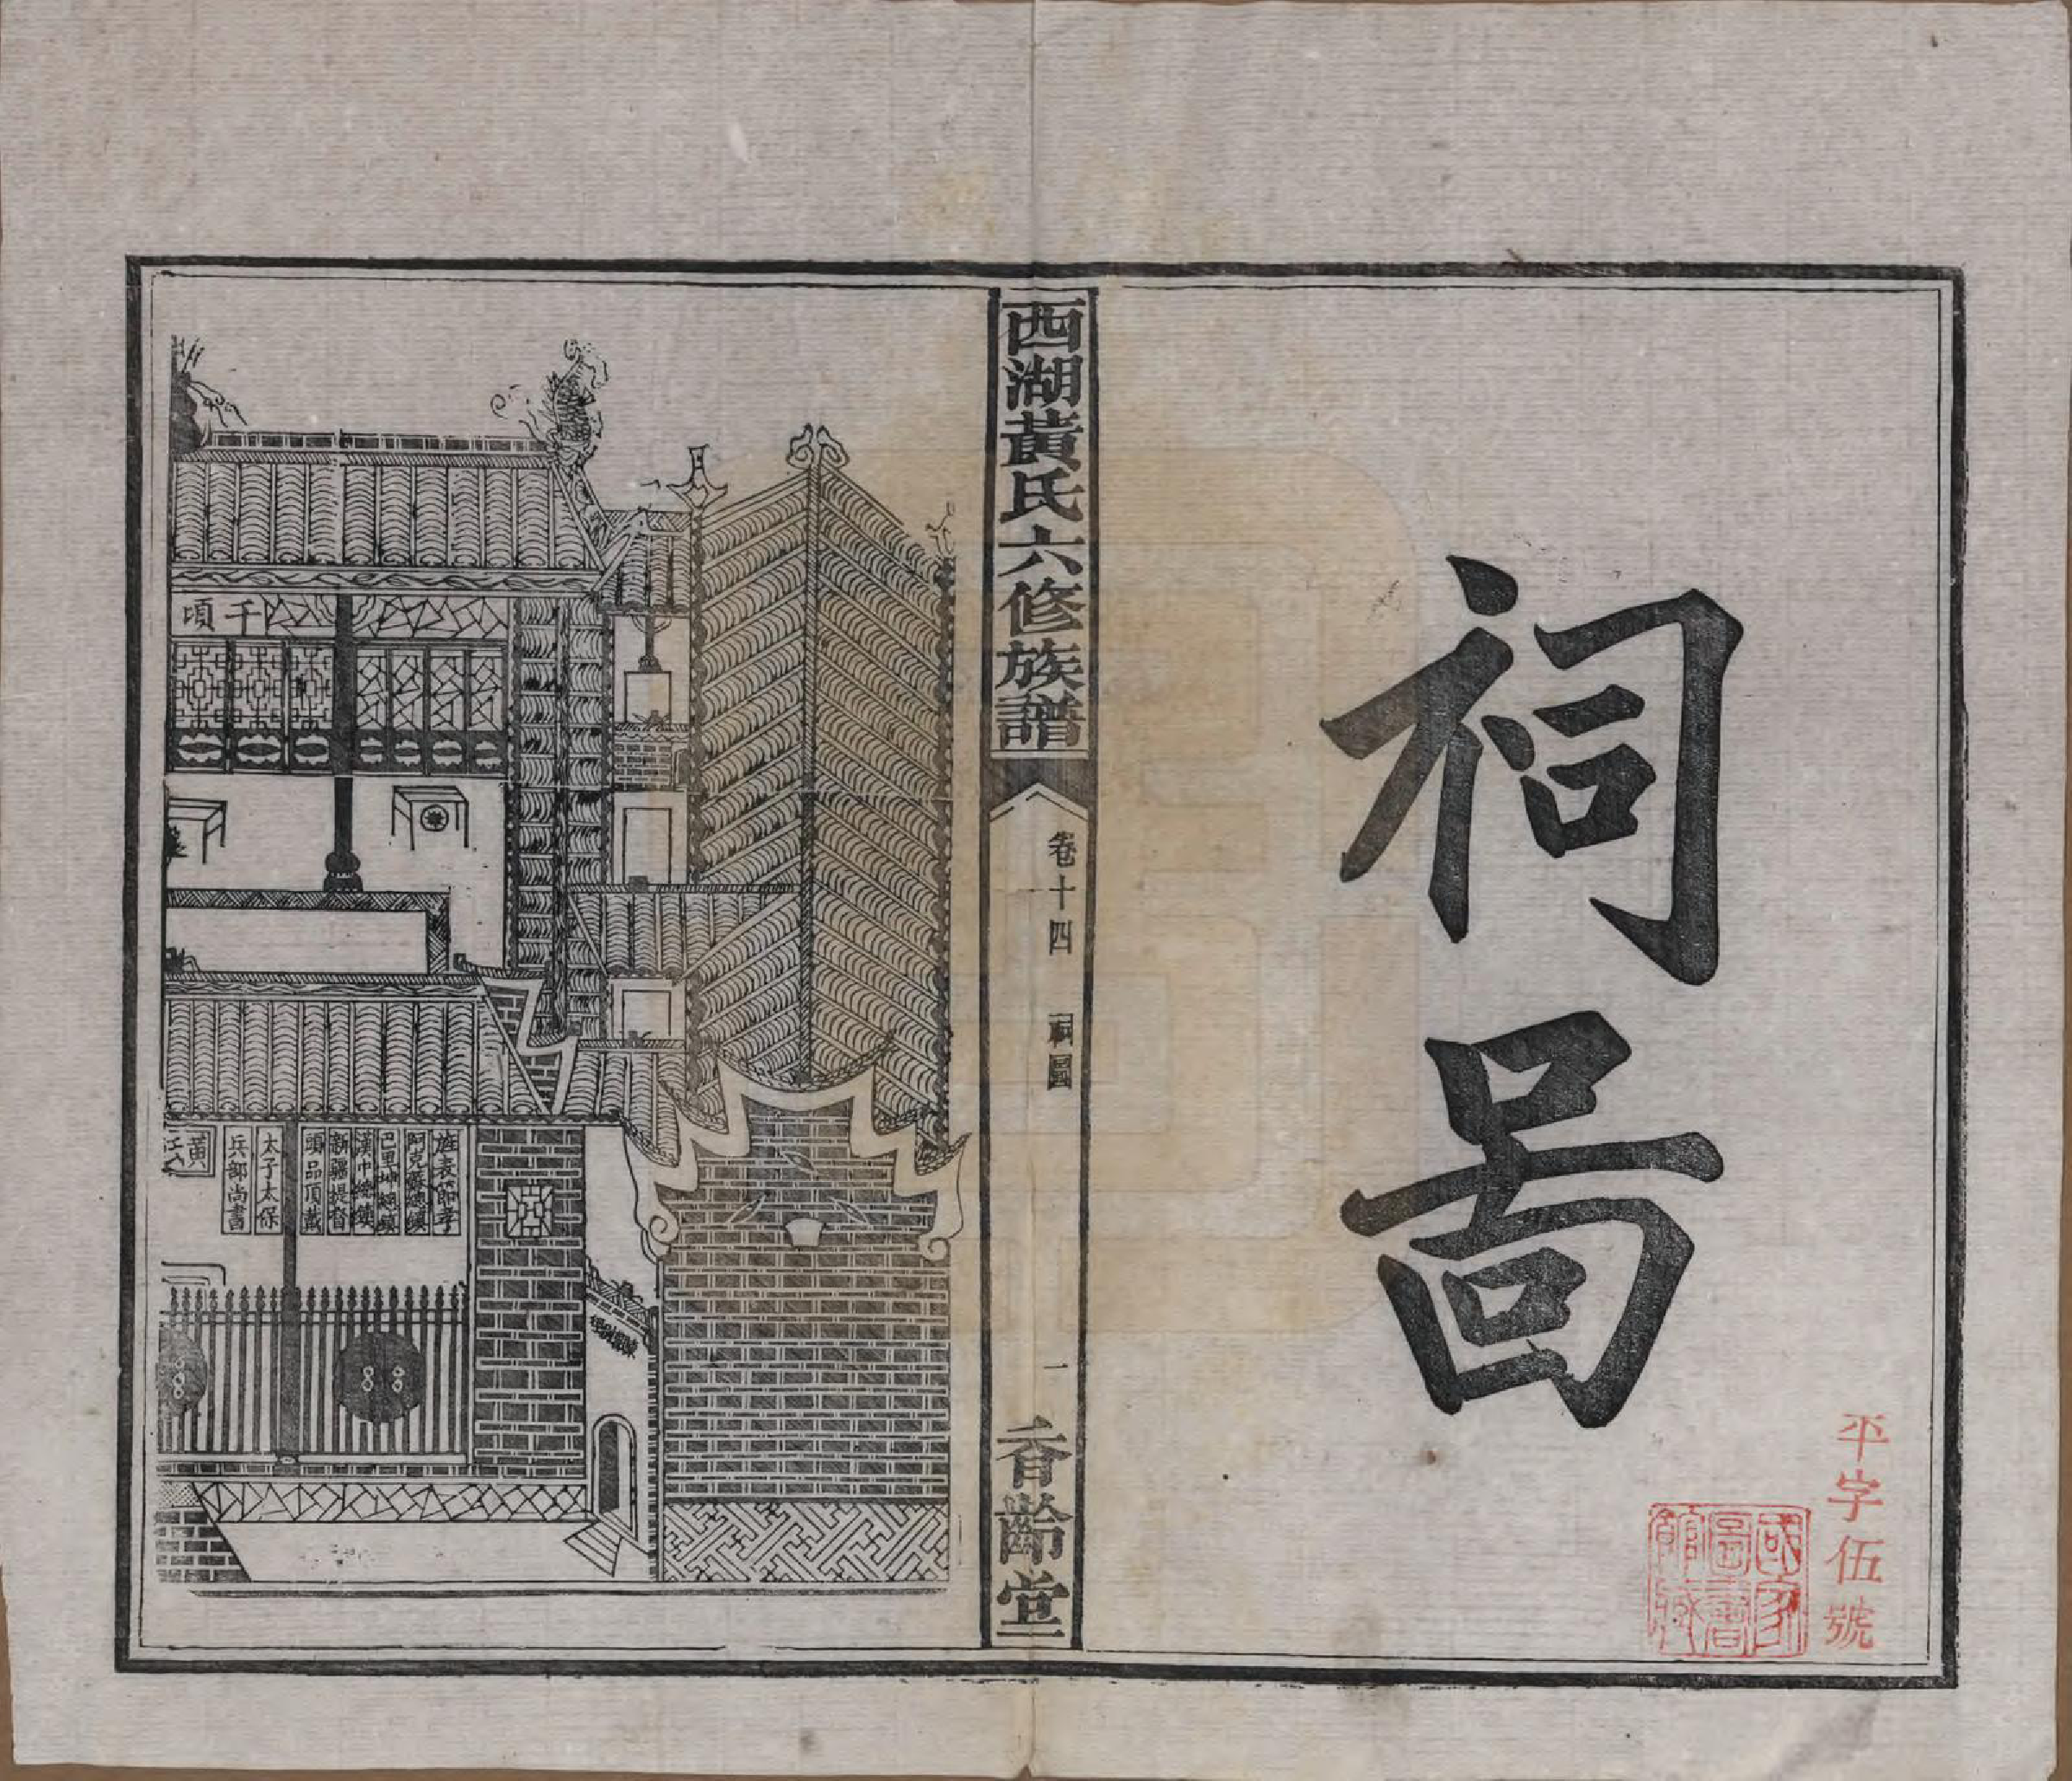 祠啚
平字伍號
國家圖書館藏
西湖黃氏六修族譜
卷十四
祠圖
一
香齡堂
千頃
旌表節孝
阿克蘇總鎮
巴里坤總鎮
漢中總鎮
新疆提督
頭品頂戴
太子太保
兵部尚書
黃
江